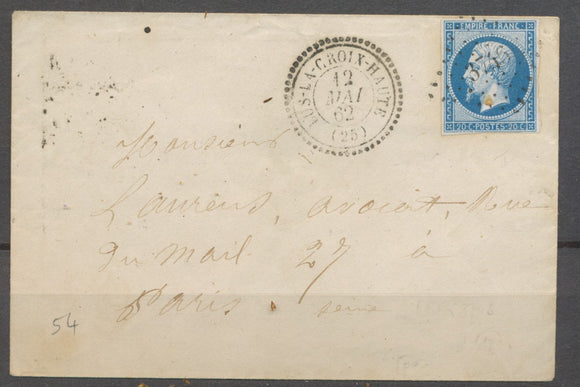 EMPIRE FRANC
20 C. POSTES 20 C.
LUS-LA-CROIX-HAUTE
12
MAI
62
(25)
Monsieur
Laurens, avocat, Rue
du Mail 27 à
Paris. seine
54